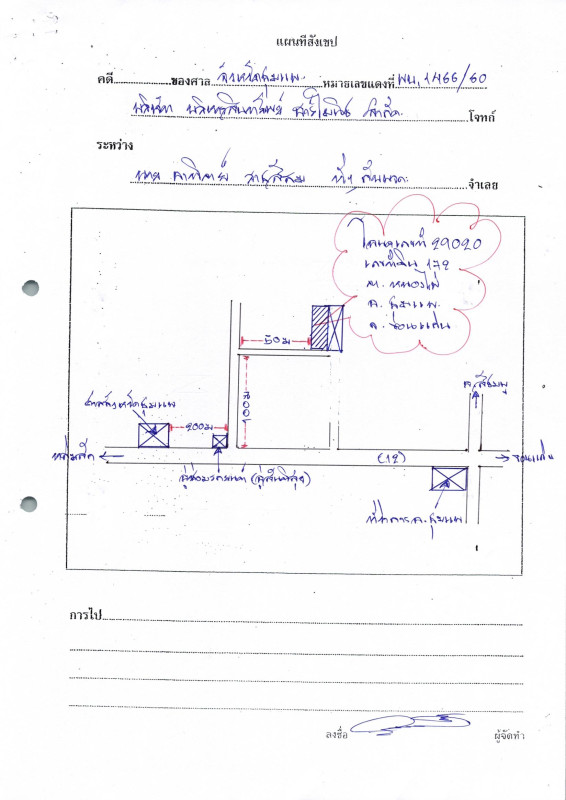 แผนที่สังเขป
คดี ของศาล จังหวัดชุมแพ หมายเลขแดงที่ ผบ. 1466/60
บริษัท บริหารสินทรัพย์ จำกัด โจทก์
ระหว่าง
นาย ที่ 1 กับพวก จำเลย
โฉนดเลขที่ 29020
เลขที่ดิน 172
ต. หนองไผ่
อ. ชุมแพ
จ. ขอนแก่น
50 ม
อ.สีชมพู
100 ม
ศาลจังหวัดชุมแพ
200 ม
หล่มสัก
(12)
ขอนแก่น
ที่ว่าการ อ. ชุมแพ
การไป
ลงชื่อ ผู้จัดทำ